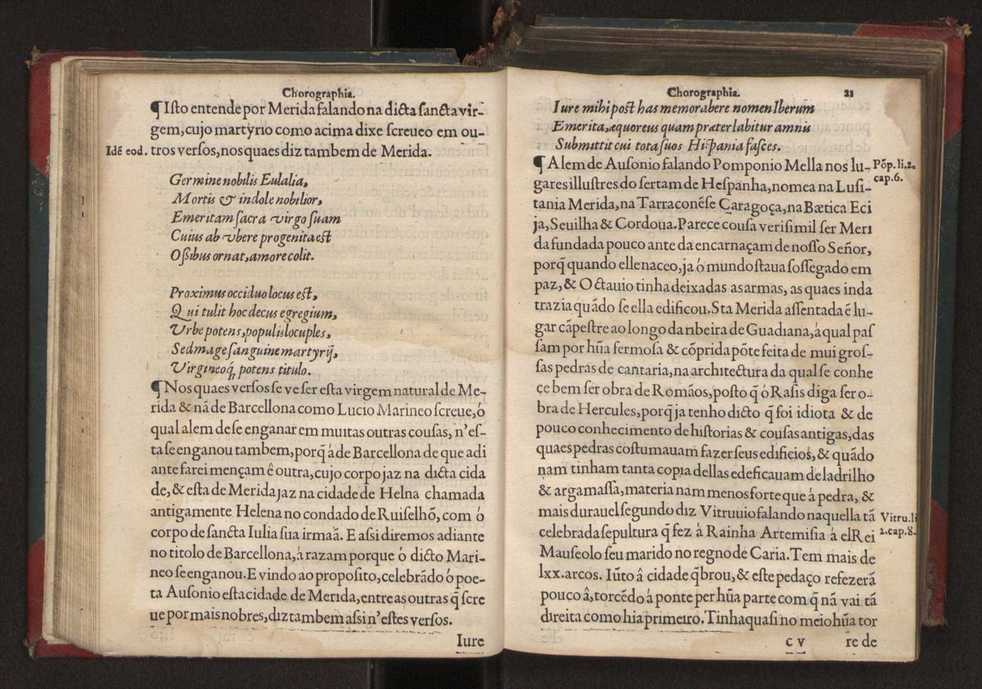 Chorographia.
¶ Isto entende por Merida falando na dicta sancta vir-
gem, cujo martyrio como acima dixe screueo em ou-
Idē eod. tros versos, nos quaes diz tambem de Merida.
Germine nobilis Eulalia,
Mortis & indole nobilior,
Emeritam sacra virgo suam
Cuius ab vbere progenita est
Ossibus ornat, amore colit.
Proximus occiduo locus est,
Qui tulit hoc decus egregium,
Vrbe potens, populis locuples,
Sed mage sanguine martyrij,
Virgineoq́ potens titulo.
¶ Nos quaes versos se ve ser esta virgem natural de Me-
rida & nā de Barcellona como Lucio Marineo screue, ó
qual alem de se enganar em muitas outras cousas, n'es-
ta se enganou tambem, porq̃ á de Barcellona de que adi
ante farei mençam ê outra, cujo corpo jaz na dicta cida
de, & esta de Merida jaz na cidade de Helna chamada
antigamente Helena no condado de Ruiselhõ, com ó
corpo de sancta Iulia sua irmaã. E assi diremos adiante
no titolo de Barcellona, á razam porque ó dicto Mari-
neo se enganou. E vindo ao proposito, celebrādo ó poe-
ta Ausonio esta cidade de Merida, entre as outras q̃ scre
ue por mais nobres, diz tambem assi n'estes versos.
Iure
Chorographia. 21
Iure mihi post has memorabere nomen Iberum
Emerita, æquoreus quam præter labitur amnis
Submittit cui tota suos Hispania fasces.
¶ Alem de Ausonio falando Pomponio Mella nos lu- Põp. li. 2.
gares illustres do sertam de Hespanha, nomea na Lusi- cap. 6.
tania Merida, na Tarraconēse Çaragoça, na Bætica Eci
ja, Seuilha & Cordoua. Parece cousa verisimil ser Meri
da fundada pouco ante da encarnaçam de nosso Señor,
porq̃ quando elle naceo, ja ó mundo staua sossegado em
paz, & Octauio tinha deixadas as armas, as quaes inda
trazia quādo se ella edificou. Sta Merida assentada ē lu-
gar cāpestre ao longo da ribeira de Guadiana, á qual pas
sam por hũa fermosa & cõprida põte feita de mui gros-
sas pedras de cantaria, na architectura da qual se conhe
ce bem ser obra de Romãos, posto q̃ ó Rasis diga ser o-
bra de Hercules, porq̃ ja tenho dicto q̃ foi idiota & de
pouco conhecimento de historias & cousas antigas, das
quaes pedras costumauam fazer seus edificios, & quādo
nam tinham tanta copia dellas edeficauam de ladrilho
& argamassa, materia nam menos forte que á pedra, &
mais durauel segundo diz Vitruuio falando naquella tā Vitru. li
celebrada sepultura q̃ fez á Rainha Artemisia á elRei 2. cap. 8.
Mauseolo seu marido no regno de Caria. Tem mais de
lxx. arcos. Iũto á cidade q̃brou, & este pedaço refezerã
pouco â, torcēdo á ponte per hũa parte com q̃ nã vai tã
direita como hia primeiro. Tinha quasi no meio hũa tor
c v re de